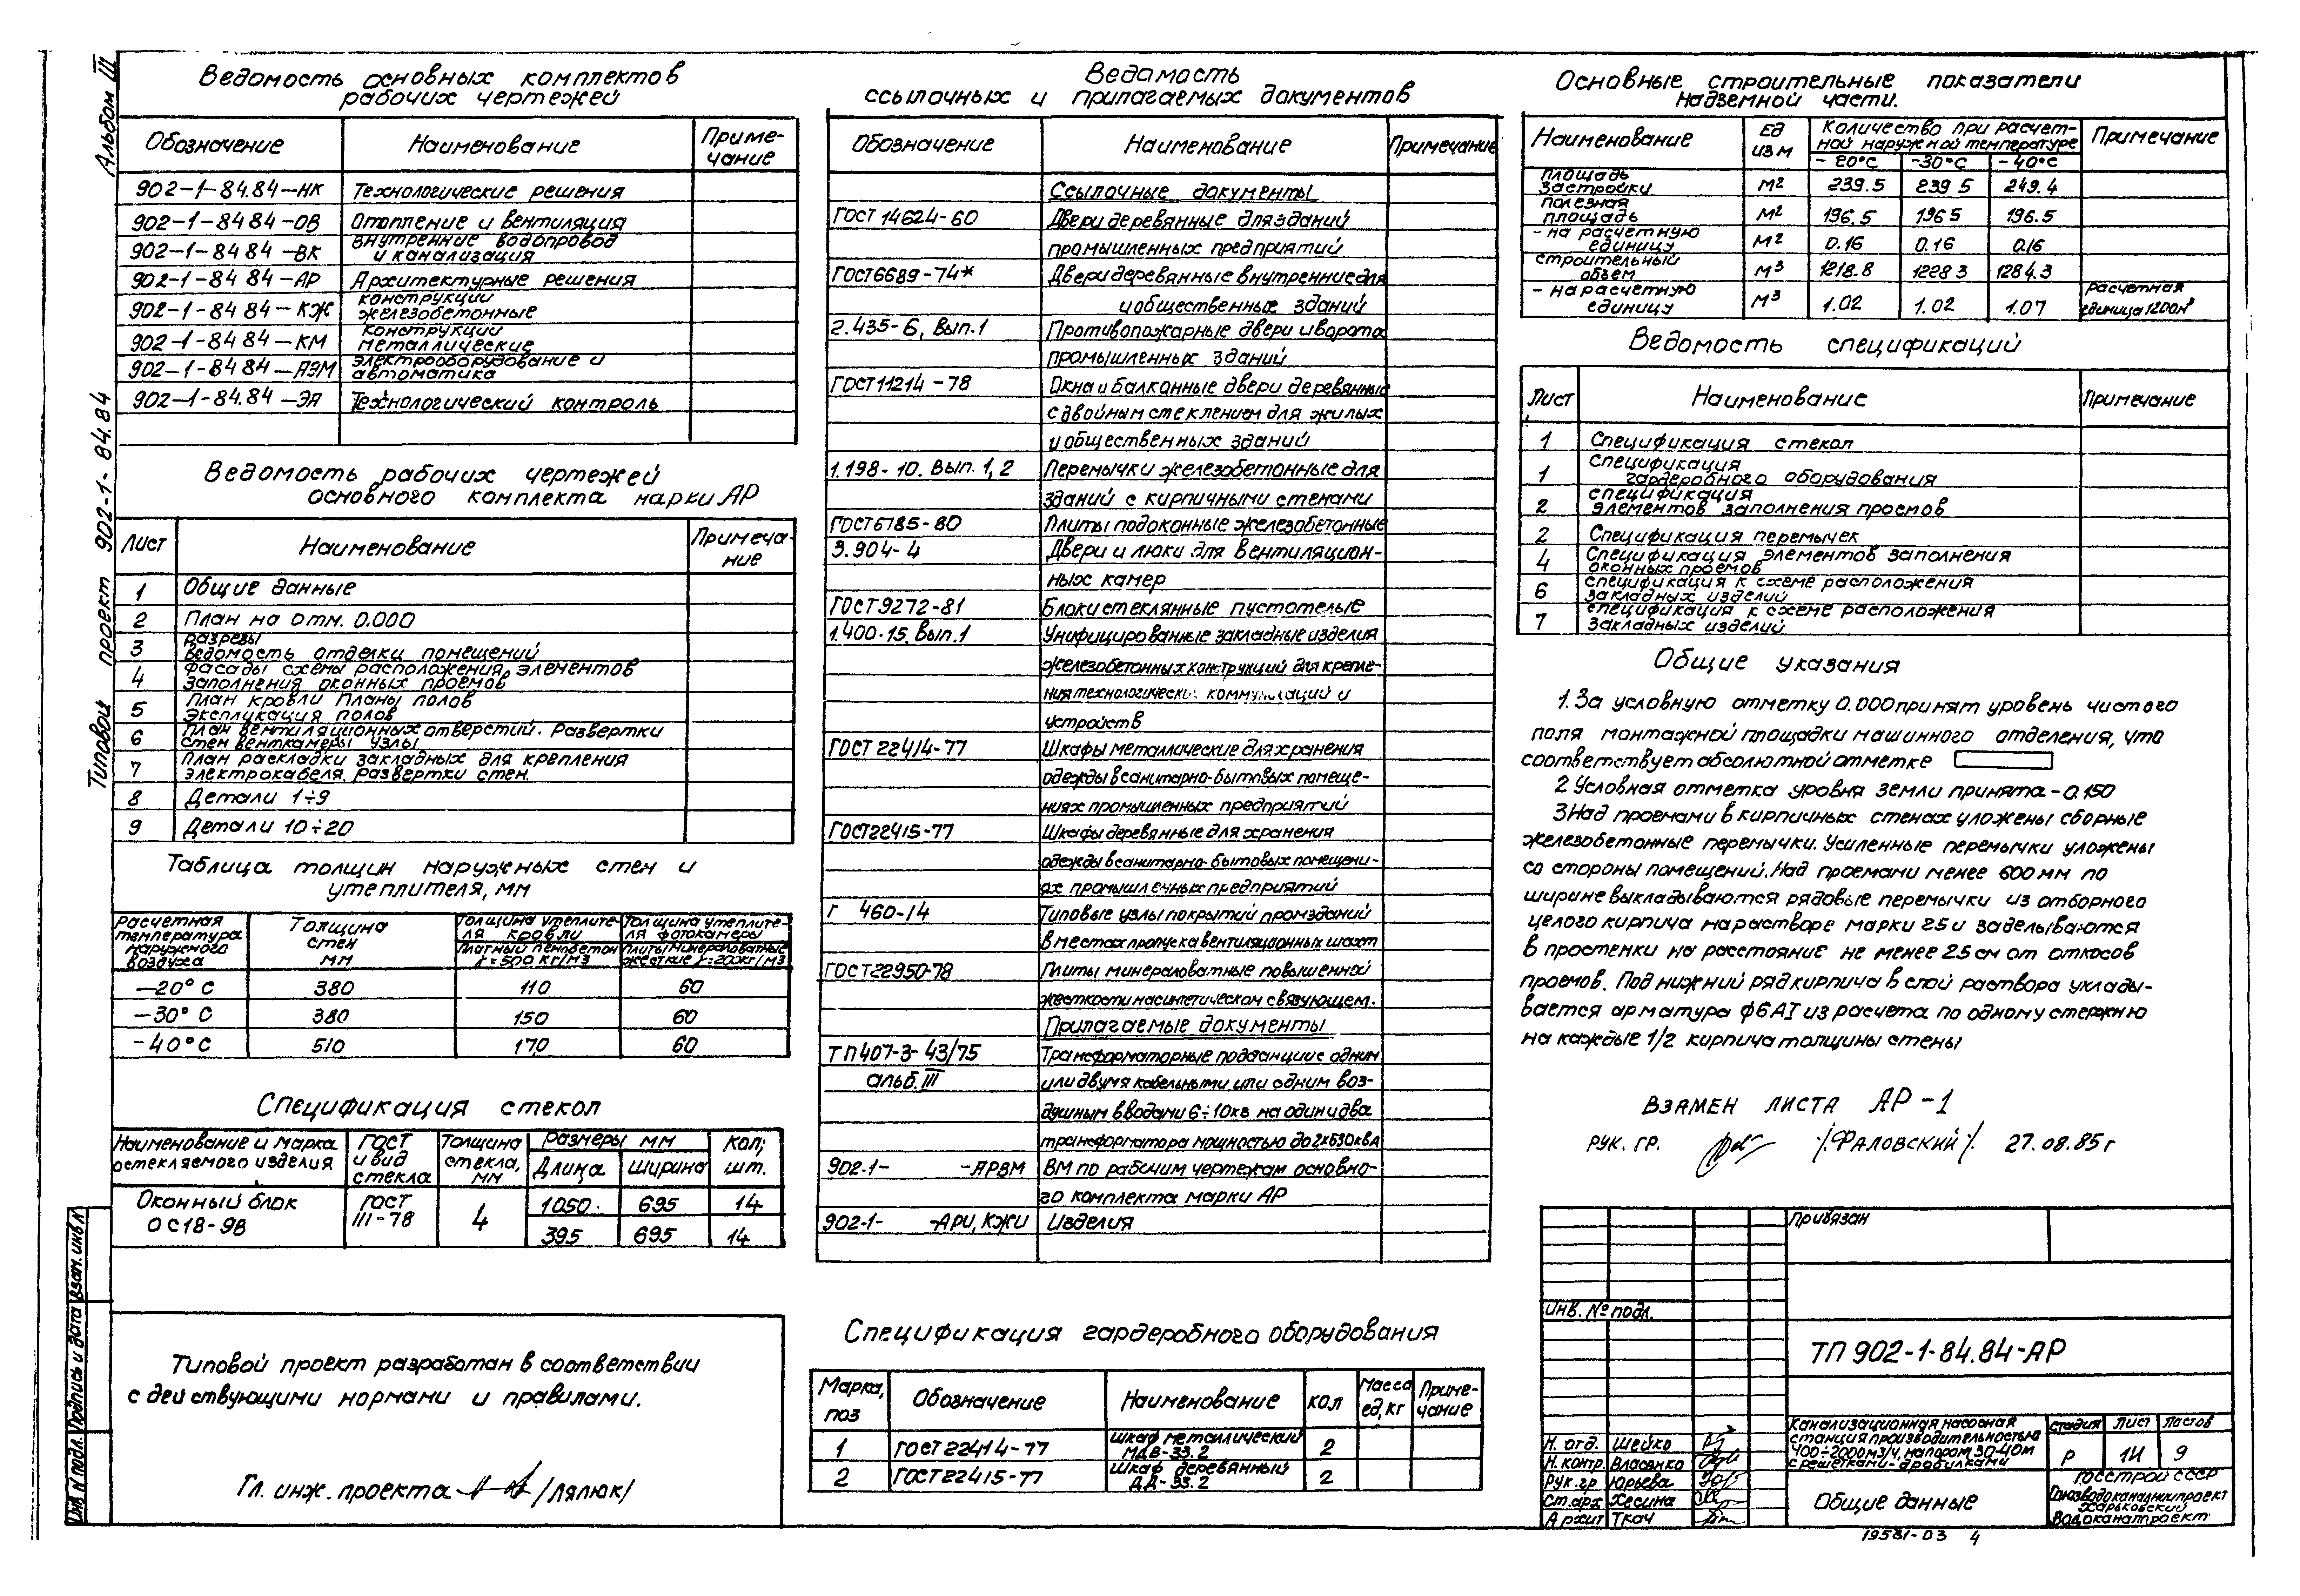 Альбом III
Типовой проект 902-1-84.84
Ведомость основных комплектов
рабочих чертежей
Обозначение Наименование Приме-
чание
902-1-84.84-НК Технологические решения
902-1-84 84-ОВ Отопление и вентиляция
902-1-84 84-ВК внутренние водопровод
и канализация
902-1-84 84-АР Архитектурные решения
902-1-84 84-КЖ конструкции
железобетонные
902-1-84 84-КМ конструкции
металлические
902-1-84 84-АЭМ электрооборудование и
автоматика
902-1-84.84-ЭА Технологический контроль
Ведомость рабочих чертежей
основного комплекта марки АР
Лист Наименование Примеча-
ние
1 Общие данные
2 План на отм. 0.000
3 разрезы
Ведомость отделки помещений
4 Фасады схемы расположения элементов
заполнения оконных проемов
5 План кровли Планы полов
Экспликация полов
6 План вентиляционных отверстий. Развертки
стен венткамеры узлы
7 План раскладки закладных для крепления
электрокабеля. Развертки стен.
8 Детали 1÷9
9 Детали 10÷20
Таблица толщин наружных стен и
утеплителя, мм
Расчетная
температура
наружного
воздуха
Толщина
стен
мм
Толщина утеплите-
ля кровли
Плитный пенобетон
γ=500 кг/м3
Толщина утеплите-
ля фотокамеры
Плиты минераловатные
жесткие γ=200кг/м3
-20° С 380 110 60
-30° С 380 150 60
-40° С 510 170 60
Спецификация стекол
Наименование и марка
остекляемого изделия
ГОСТ
и вид
стекла
Толщина
стекла,
мм
Размеры мм
Длина Ширина
Кол;
шт.
Оконный блок
ОС18-9В
ГОСТ
111-78
4
1050 695 14
395 695 14
Типовой проект разработан в соответствии
с действующими нормами и правилами.
Гл. инж. проекта /Лялюк/
Инв N подл. Подпись и дата Взам. инв N
Ведомость
ссылочных и прилагаемых документов
Обозначение Наименование Примечание
Ссылочные документы
ГОСТ 14624-60 Двери деревянные для зданий
промышленных предприятий
ГОСТ6689-74* Двери деревянные внутренние для
и общественных зданий
2.435-6, Вып.1 Противопожарные двери и ворота
промышленных зданий
ГОСТ11214-78 Окна и балконные двери деревянные
с двойным стеклением для жилых
и общественных зданий
1.198-10. Вып. 1, 2 Перемычки железобетонные для
зданий с кирпичными стенами
ГОСТ6785-80 Плиты подоконные железобетонные
3.904-4 Двери и люки для вентиляцион-
ных камер
ГОСТ9272-81 Блоки стеклянные пустотелые
1.400-15. Вып.1 Унифицированные закладные изделия
железобетонных конструкций для крепле-
ния технологических коммуникаций и
устройств
ГОСТ 22414-77 Шкафы металлические для хранения
одежды в санитарно-бытовых помеще-
ниях промышленных предприятий
ГОСТ22415-77 Шкафы деревянные для хранения
одежды в санитарно-бытовых помещени-
ях промышленных предприятий
Г 460-14 Типовые узлы покрытий промзданий
в местах пропуска вентиляционных шахт
ГОСТ22950-78 Плиты минераловатные повышенной
жесткости на синтетическом связующем.
Прилагаемые документы
ТП407-3-43/75 Трансформаторные подстанции с одним
альб. III или двумя кабельными или одним воз-
душным вводами 6÷10кв на один и два
трансформатора мощностью до 2х630кВА
902-1- -АРВМ ВМ по рабочим чертежам основно-
го комплекта марки АР
902-1- -АРИ, КЖИ Изделия
Спецификация гардеробного оборудования
Марка,
поз
Обозначение Наименование Кол Масса
ед, кг
Приме-
чание
1 ГОСТ22414-77 шкаф металлический
МДВ-33.2 2
2 ГОСТ22415-77 Шкаф деревянный
ДД-33.2 2
Основные строительные показатели
надземной части.
Наименование Ед
изм
Количество при расчет-
ной наружной температуре
-20°С -30°С -40°С
Примечание
площадь
застройки м2 239.5 239 5 249.4
полезная
площадь м2 196.5 196 5 196.5
- на расчетную
единицу м2 0.16 0.16 0.16
строительный
объем м3 1218.8 1228 3 1284.3
- на расчетную
единицу м3 1.02 1.02 1.07 Расчетная
единица 1200м3
Ведомость спецификаций
Лист Наименование Примечание
1 Спецификация стекол
1 Спецификация
гардеробного оборудования
2 спецификация
элементов заполнения проемов
2 Спецификация перемычек
4 Спецификация элементов заполнения
оконных проемов
6 спецификация к схеме расположения
закладных изделий
7 спецификация к схеме расположения
закладных изделий
Общие указания
1. За условную отметку 0.000 принят уровень чистого
пола монтажной площадки машинного отделения, что
соответствует абсолютной отметке
2 Условная отметка уровня земли принята -0.150
3 Над проемами в кирпичных стенах уложены сборные
железобетонные перемычки. Усиленные перемычки уложены
со стороны помещений. Над проемами менее 600мм по
ширине выкладываются рядовые перемычки из отборного
целого кирпича на растворе марки 25 и заделываются
в простенки на расстояние не менее 25 см от откосов
проемов. Под нижний ряд кирпича в слой раствора уклады-
вается арматура ф6АI из расчета по одному стержню
на каждые 1/2 кирпича толщины стены
ВЗАМЕН ЛИСТА АР-1
РУК. ГР. /ФАЛОВСКИЙ/ 27.08.85г
Привязан
Инв. № подл.
ТП 902-1-84.84-АР
Н. отд. Шейко
Н. контр. Власенко
Рук. гр Юрьева
Ст. арх Хесина
Архит Ткач
Канализационная насосная
станция производительностью
400÷2000м3/ч, напором 30-40м
с решетками-дробилками
Стадия Лист Листов
Р 1И 9
Общие данные
Госстрой СССР
Союзводоканалниипроект
Харьковский
Водоканалпроект
19581-03 4